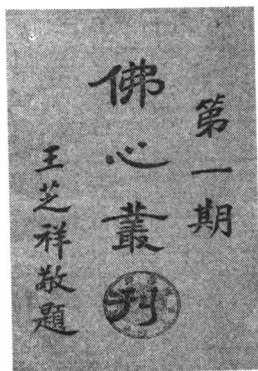 第一期
佛心叢刊
王芝祥敬題